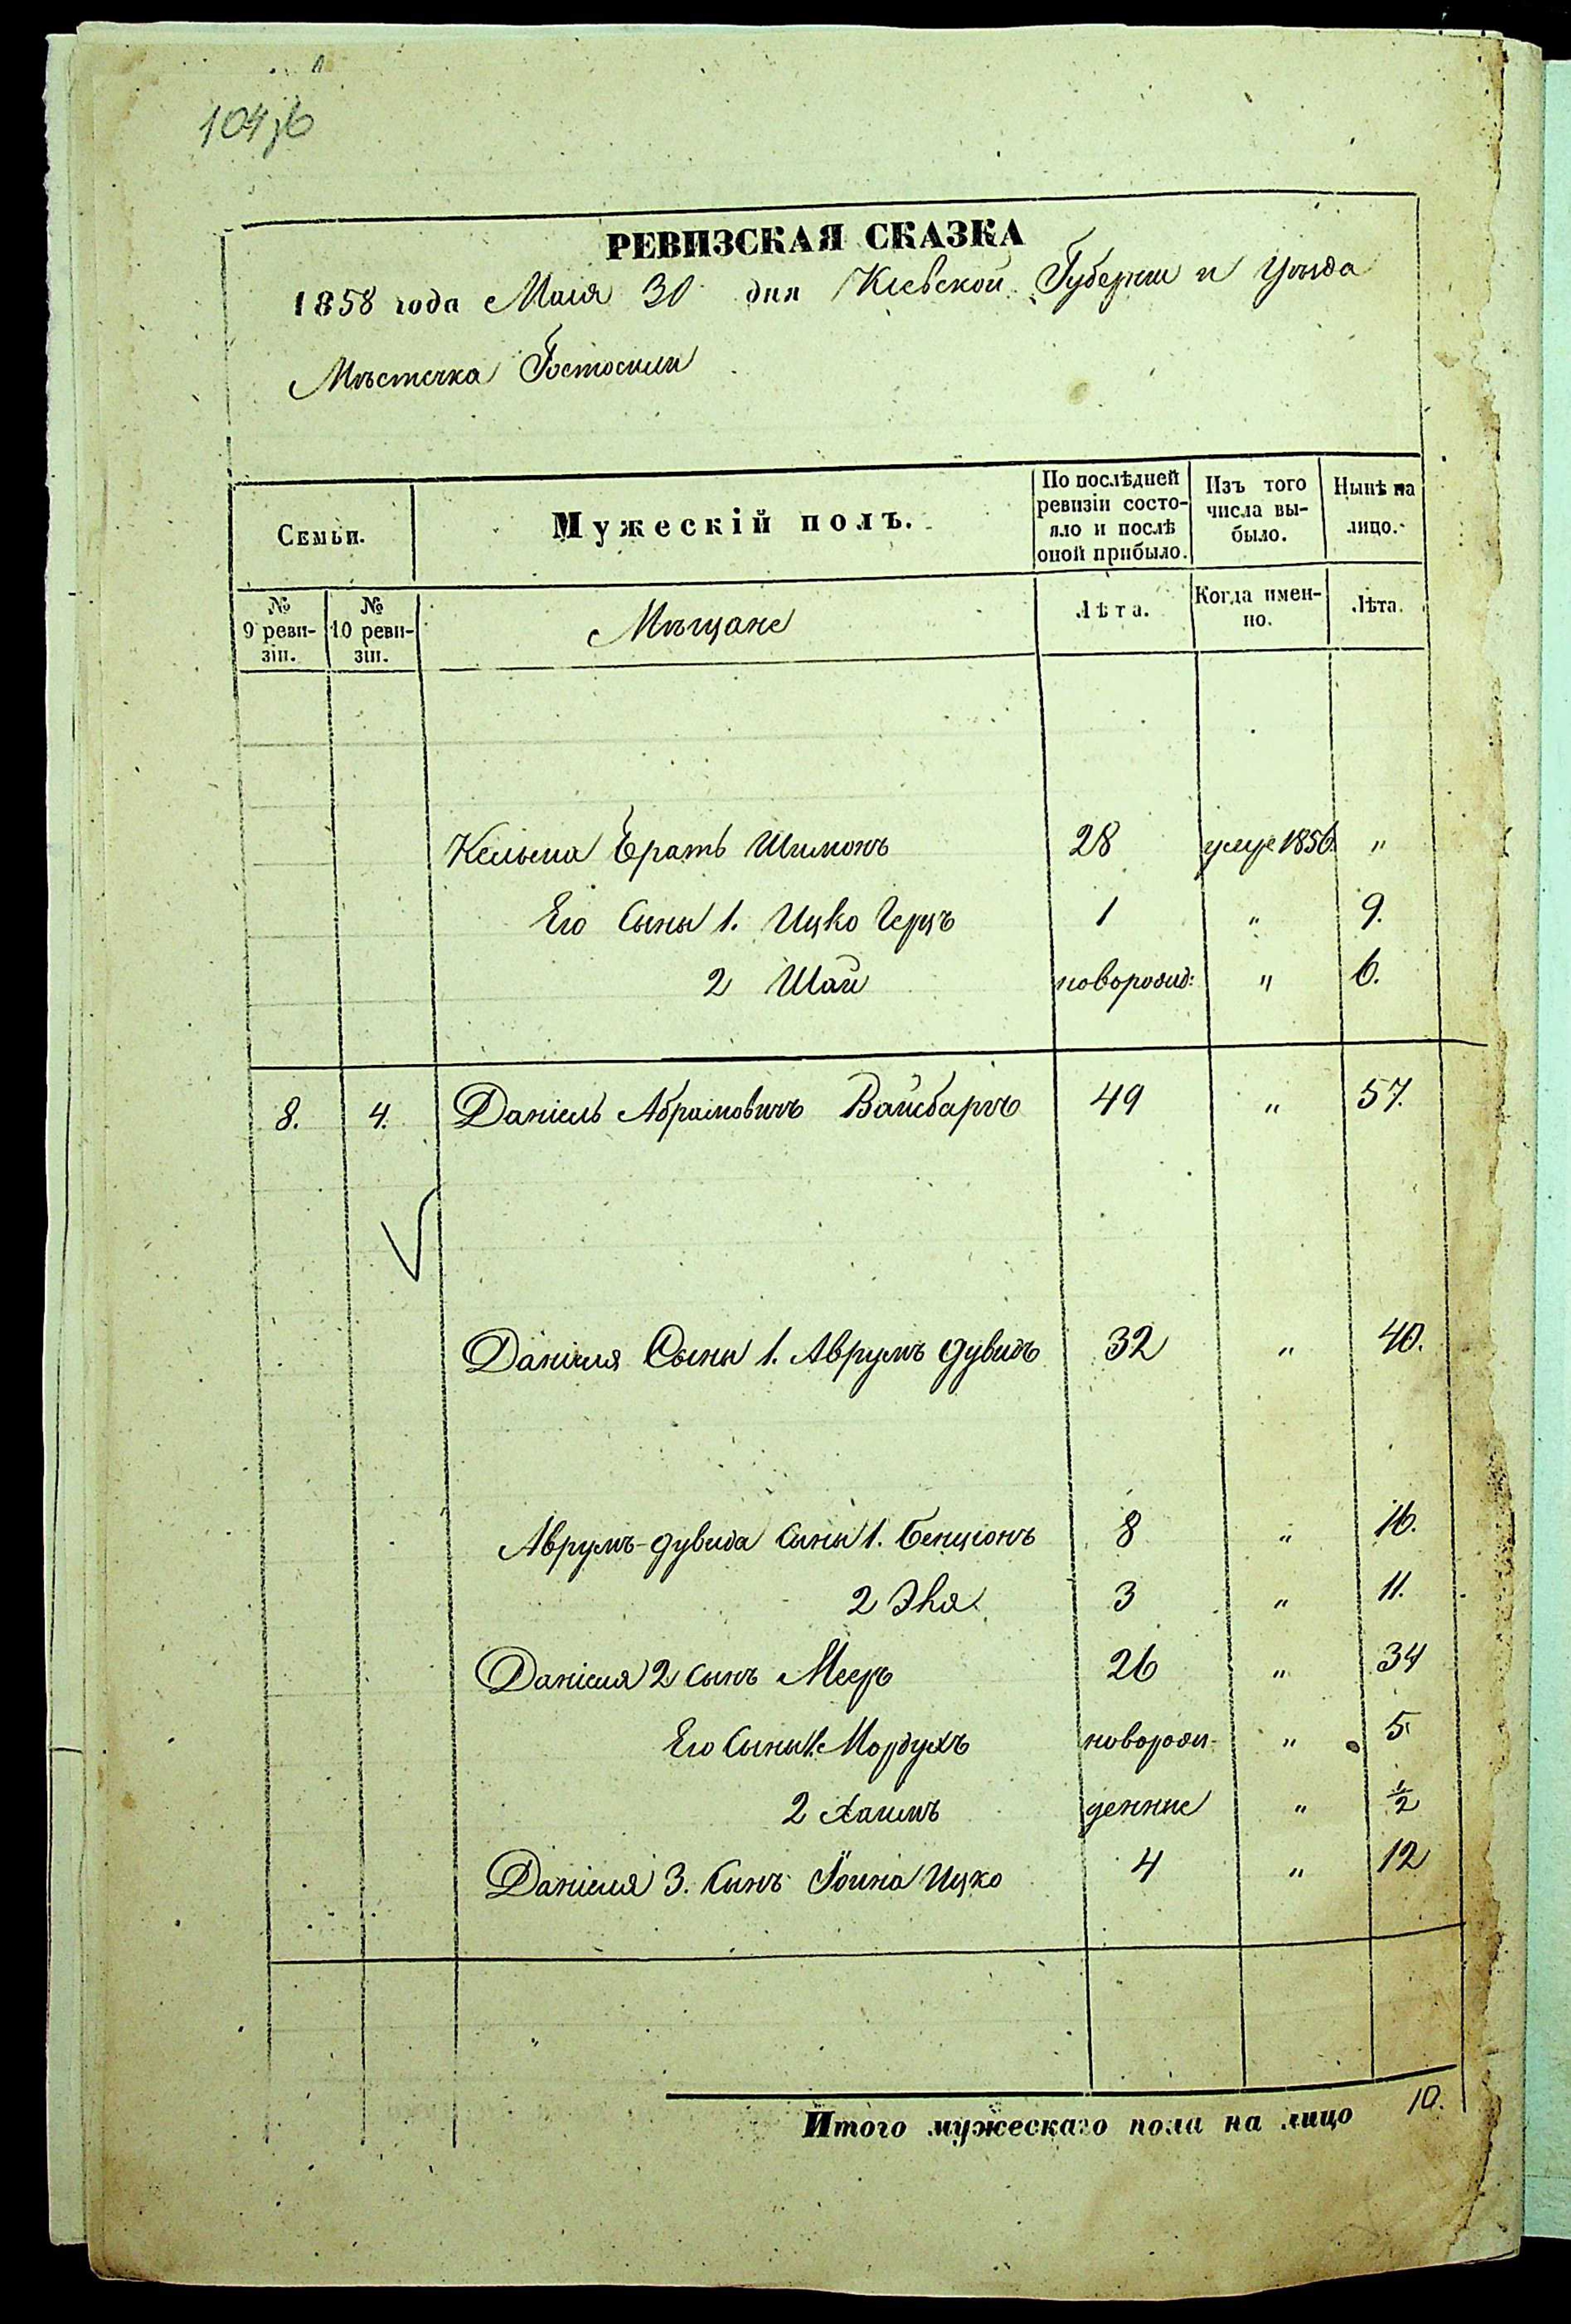 104об
РЕВИЗСКАЯ СКАЗКА
1858 года Маія 30 дня Кіевской Губерніи и Уѣзда
Мѣстечка Гостомля
Семьи.
Мужескій полъ.
По послѣдней ревизіи состо-яло и послѣ оной прибыло.
Изъ того числа вы-было.
Нынѣ на лицо.
№ 9 реви-зіи.
№ 10 реви-зіи.
Мѣщане
Лѣта.
Когда имен-но.
Лѣта.
Кельмна Братъ Шимонъ 28 умре 1856. "
Его Сыны 1. Ицко Герцъ 1 " 9.
2 Шай новорожд: " 6.
8. 4. Даніель Абрамовичъ Вайсбаргъ 49 " 57.
Даніеля Сыны 1. Аврумъ Дувидъ 32 " 40.
Аврумъ-Дувида Сыны 1. Бенціонъ 8 " 16.
2 3 " 11.
Даніеля 2 сынъ Мееръ 26 " 34
Его Сыны 1. Мордухъ новорож- " 5
2 Хаимъ денные " ½
Даніеля 3. Сынъ Іоина Ицко 4 " 12
Итого мужескаго пола на лицо 10.